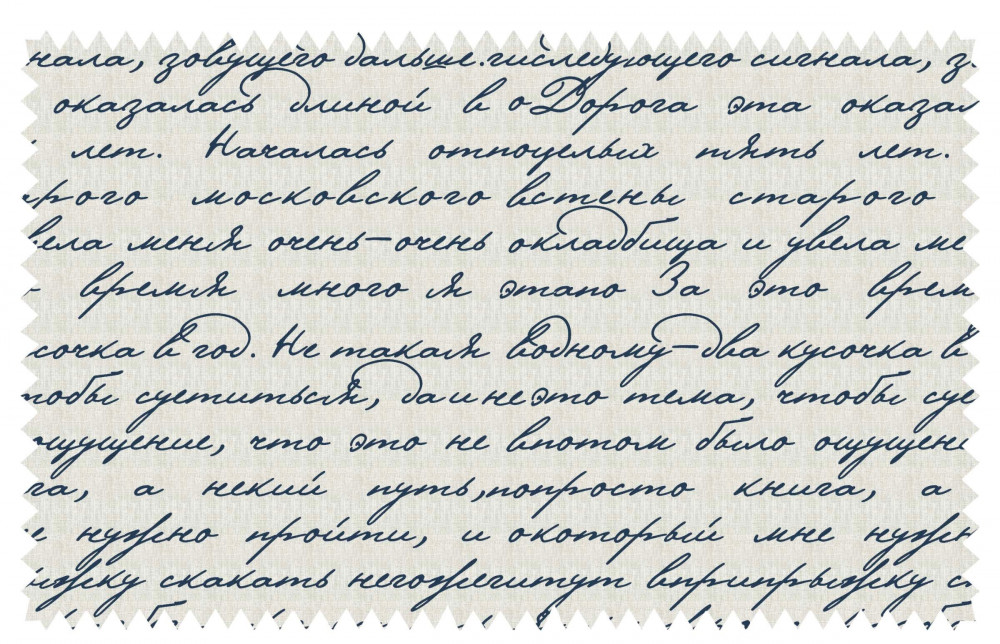 нала, зовущего дальше.гиследующего сигнала, з
оказалась длиной в оДорога эта оказал
лет. Началась отпоцелых пять лет.
рого московского встены старого
вела меня очень-очень окладбища и увела ме
время много я этапо За это врем
сочка в год. Не такая Водному-два кусочка в
тобы суетиться, даинеэто тема, чтобы суе
ощущение, что это не впотом было ощущени
га, а некий путь,попросто книга, а
е нужно пройти, и окоторый мне нужн
ыжку скакать негожегитут вприпрыжку с